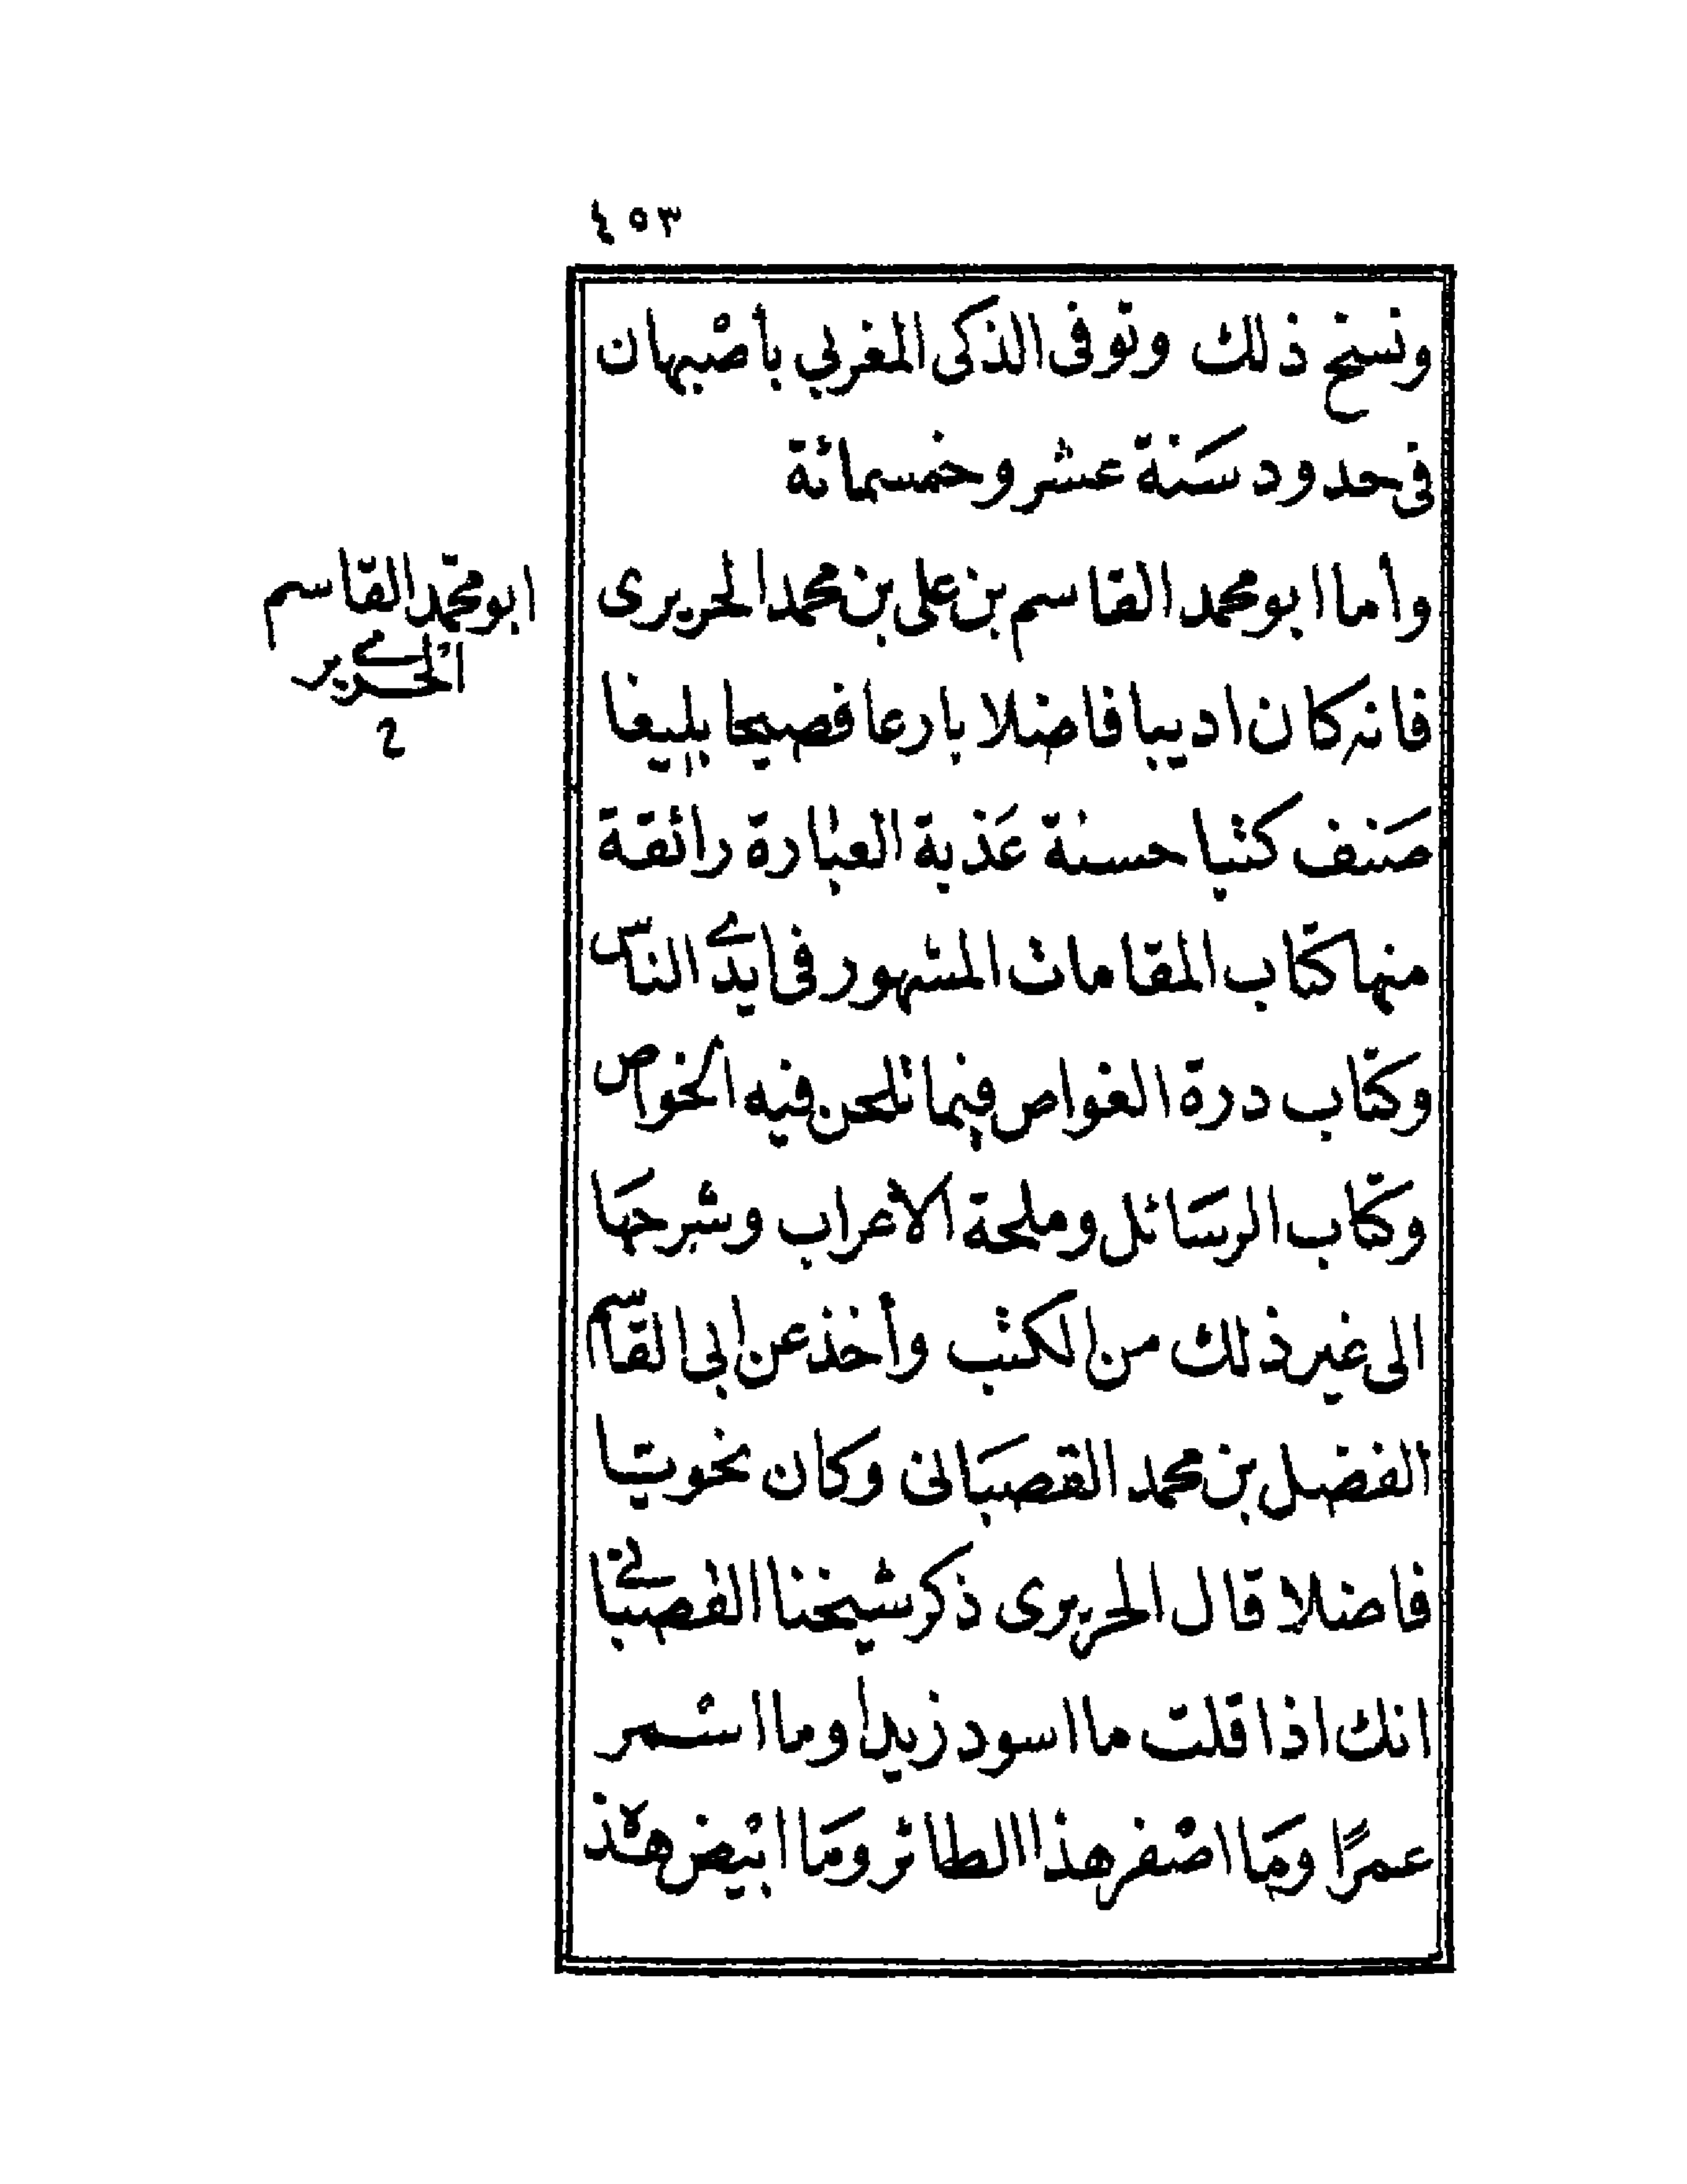 ٤٥٣
ونسخ ذلك وتوفى الذكى المغربي بأصْبهان
فى حدود سَنة عشر وخمسمائة
وأما ابو محمد القاسم بن على بن محمد الحريرى
فانه كان اديبا فاضلا بارعا فصيحا بليغا
صَنف كتبا حسنة عَذبة العبارة رائقة
منها كتاب المقامات المشهور فى ايدے الناس
وكتاب درة الغواص فيما تلحن فيه الخواص
وكتاب الرسَائل وملحة الاعراب وشرحهَا
الى غير ذلك من الكتب وأخذ عن ابى القاسم
الفضل بن محمد القصبَانى وكان نحويّا
فاضلا قال الحريرى ذكر شيخنا القصبانے
انك اذا قلت ما اسود زيدا وما اسْمر
عمرًا ومَا اصْفر هذا الطائر ومَا ابْيض هذه
ابو محمّد القاسم
الحريرے